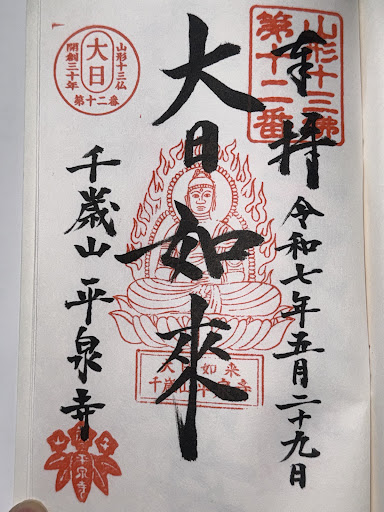 山形十三佛
第十二番
奉拝
令和七年五月二十九日
大日如來
大日如来
千歳山平泉寺
山形十三仏
大日
開創三十年
第十二番
千歳山 平泉寺
平泉寺